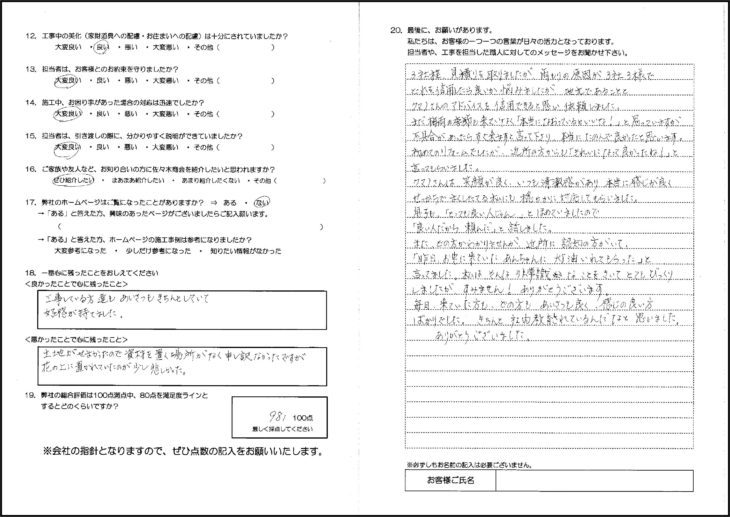 12. 工事中の美化（家財道具への配慮・お住まいへの配慮）は十分にされていましたか？
大変良い ・ 良い ・ 悪い ・ 大変悪い ・ その他（　　　）
13. 担当者は、お客様とのお約束を守りましたか？
大変良い ・ 良い ・ 悪い ・ 大変悪い ・ その他（　　　）
14. 施工中、お困り事があった場合の対応は迅速でしたか？
大変良い ・ 良い ・ 悪い ・ 大変悪い ・ その他（　　　）
15. 担当者は、引き渡しの際に、分かりやすく説明ができていましたか？
大変良い ・ 良い ・ 悪い ・ 大変悪い ・ その他（　　　）
16. ご家族や友人など、お知り合いの方に佐々木商会を紹介したいと思われますか？
ぜひ紹介したい ・ まあまあ紹介したい ・ あまり紹介したくない ・ その他（　　　）
17. 弊社のホームページはご覧になったことがありますか？ ⇒ ある ・ ない
→「ある」と答えた方、興味のあったページがございましたらご記入願います。
（　　　）
→「ある」と答えた方、ホームページの施工事例は参考になりましたか？
大変参考になった ・ 少しだけ参考になった ・ 知りたい情報がなかった
18. 一番心に残ったことをおしえてください
<良かったことで心に残ったこと>
工事している方達も あいさつもきちんとしていて
好感が持てました。
<悪かったことで心に残ったこと>
土地がせまかったので資材を置く場所がなく申し訳なかったですが
花の上に置かれていたのが少し悲しかった。
19. 弊社の総合評価は100点満点中、80点を満足度ラインと
するとどのくらいですか？
98/100点
厳しく採点してください
※会社の指針となりますので、ぜひ点数の記入をお願いいたします。
20. 最後に、お願いがあります。
私たちは、お客様の一つ一つの言葉が日々の活力となっております。
担当者や、工事を担当した職人に対してのメッセージをお聞かせ下さい。
3社様、見積りを取りましたが、雨もりの原因が3社3様で
どれを信用したら良いか悩みましたが 地元であることと
さんのアドバイスを信用できると思い依頼しました。
「本当になおっているといいな！」と思っていますが
不具合があったらすぐ来ますと言って下さり、本当にたのんで良かったと思います。
初めてのリフォームでしたが、近所の方からも「きれいになって良かったね！」と
言ってもらいました。
さんは、笑顔が良く、いつも清潔感があり 本当に感じが良く
息子も、「とっても良い人じゃん」とほめていましたので
「良い人だから 頼んだ」と話しました。
また、どの方かわかりませんが、近所に 認知の方がいて、
「昨日、お宅に来ていた あんちゃんに 灯油いれてもらった」と
言ってました。私は そんな 非常識 なことをさせて とてもびっくり
しましたが すみません！ ありがとうございます。
毎日 来ていた方も、どの方も あいさつも良く、感じの良い方
ばかりでした。きちんと 社内教育されているんだなと 思いました。
ありがとうございました。
※必ずしもお名前の記入は必要ございません。
お客様ご氏名